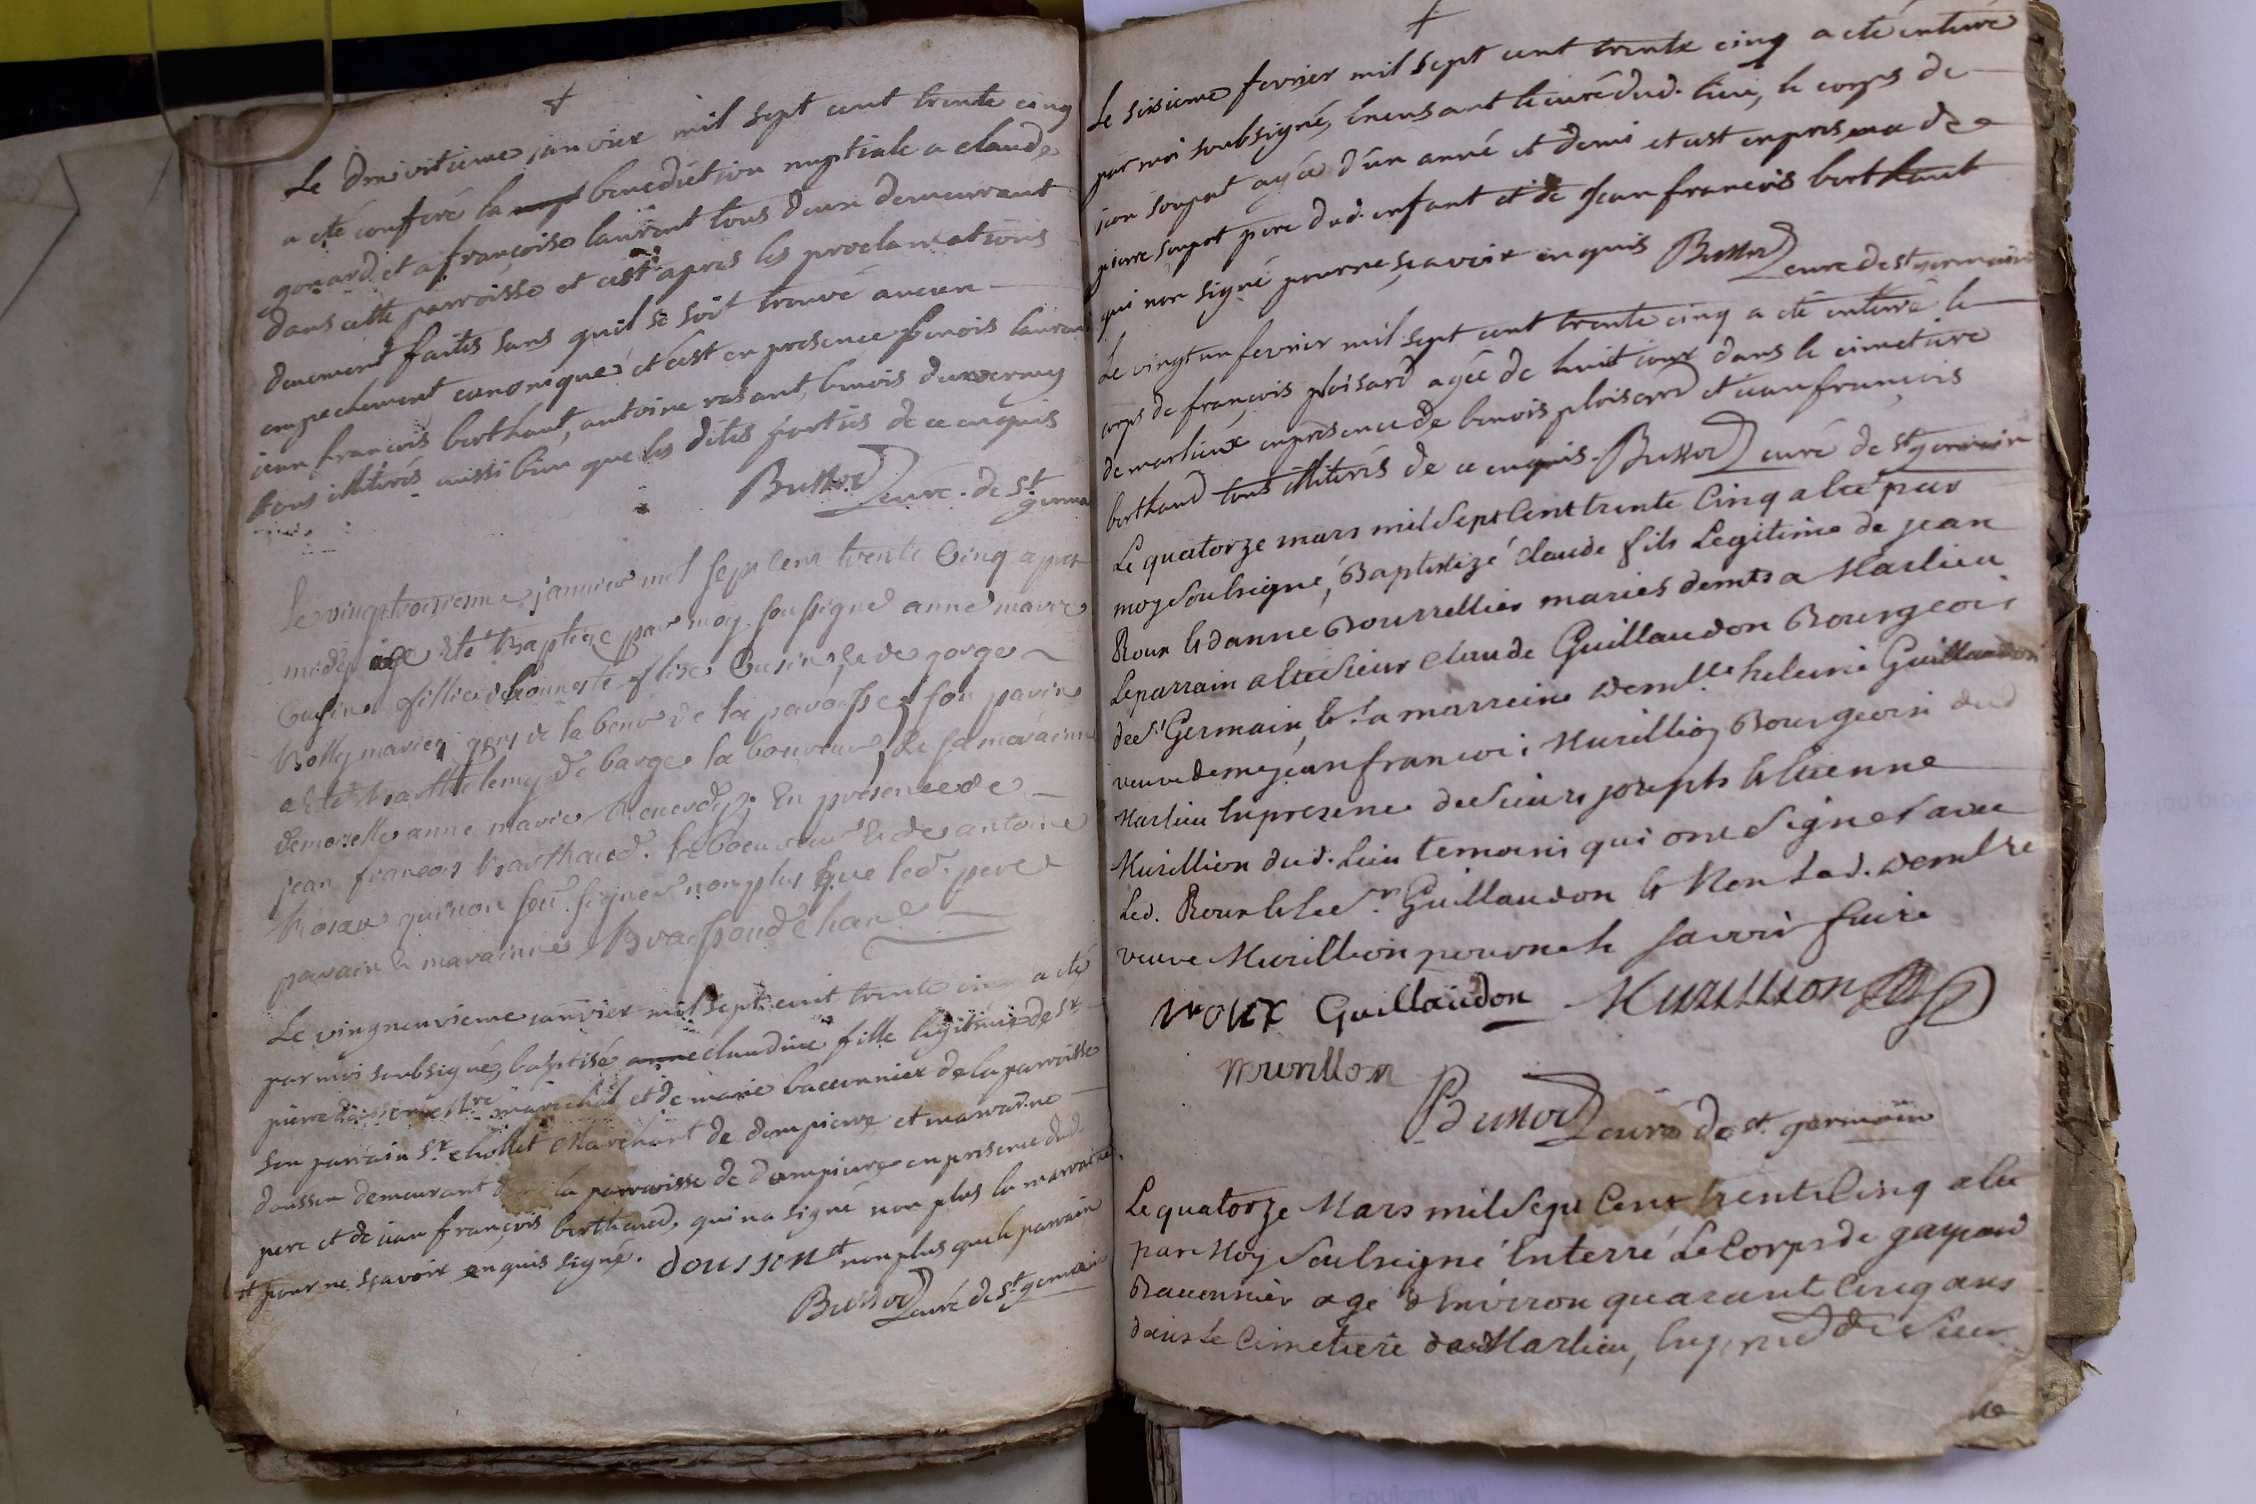 Le dixvitieme janvier mil sept cent trente cinq
a été conferé la benediction nuptiale a claude
gonard et a françoise laurent tous deux demeurant
dans cette parroisse et cest apres les proclamations
deuement faites sans quil se soit trouvé aucun
empechement canonique et cest en presence
jean francois berthaut, antoine rosant, benois
tous illiterés aussi bien que les dites parties de ce enquis
Bussod curé de st
germain
Le vingttroizieme janvier mil sept cent trente Cinq
midep a Ete Baptizé par moy soussigne anne marie
fillie
a Ete Barthelemy de barges la bouveur, Et sa maraine
demoiselle anne marie En presence de
jean francois Barthaud
Rosan qui non seu signer non plus que led. pere
parain & maraine
Le vingneuvieme janvier mil sept cent trente cinq a été
par moi soubsigné, baptisé anne claudine fille legitime de sr
pierre marechal et de marie baconnier de la parroisse
son parrain sr chollet Marchant de dompierre et marraine
dousson demeurant la parroisse de dompierre en presence dud.
pere et de jean françois berthaud, qui na signé non plus la marraine
et pour ne sçavoir enquis signé. dousson et non plus que le parrain
Bussod curé de st germain
Le sixieme fevrier mil sept cent trente cinq a été enterré
par moi soubsigné, le curé dud. lieu, le corps de
jean soupat agée d'un anné et demi et cest en presence de
pierre soupat pere dud. enfant et de Jean francois berthaut
qui non signé pour ne sçavoir enquis Bussod curé de st germain
Le vingt un fevrier mil sept cent trente cinq a été enterré le
corps de françois ploisard agée de huit jour dans le cimetiere
de marlieux en presence de benois ploisard et jean françois
berthaud tous illiterés de ce enquis. Bussod curé de st germain
Le quatorze mars mil sept Cent trente Cinq a Eté par
moy Soubsigné, Baptizé claude fils Legitime de jean
Roux & danne Bourrellier mariés demts a Marlieu
Le parrain a Eté Sieur Claude Guillaudon Bourgeois
de St Germain, & La marreine demlle heleine Guillaudon
veuve de me jean francois Murillion Bourgeois dud
Marlieu En presence de Sieurs joseph & Etienne
Murillion dud. Lieu temoins qui ont Signes avec
Led. Roux & Le Sr Guillaudon & Non Lad. demlle
veuve Murillion pour ne le savoir faire
roux Guillaudon Murillion
Murillon
Bussod curé de st. germain
Le quatorze Mars mil Sept Cent trente Cinq a Eté
par Moy Soubsigné Enterré Le Corps de gaspard
Baconnier agé d'Environ quarante Cinq ans
dans Le Cimetiere de Marlieu,